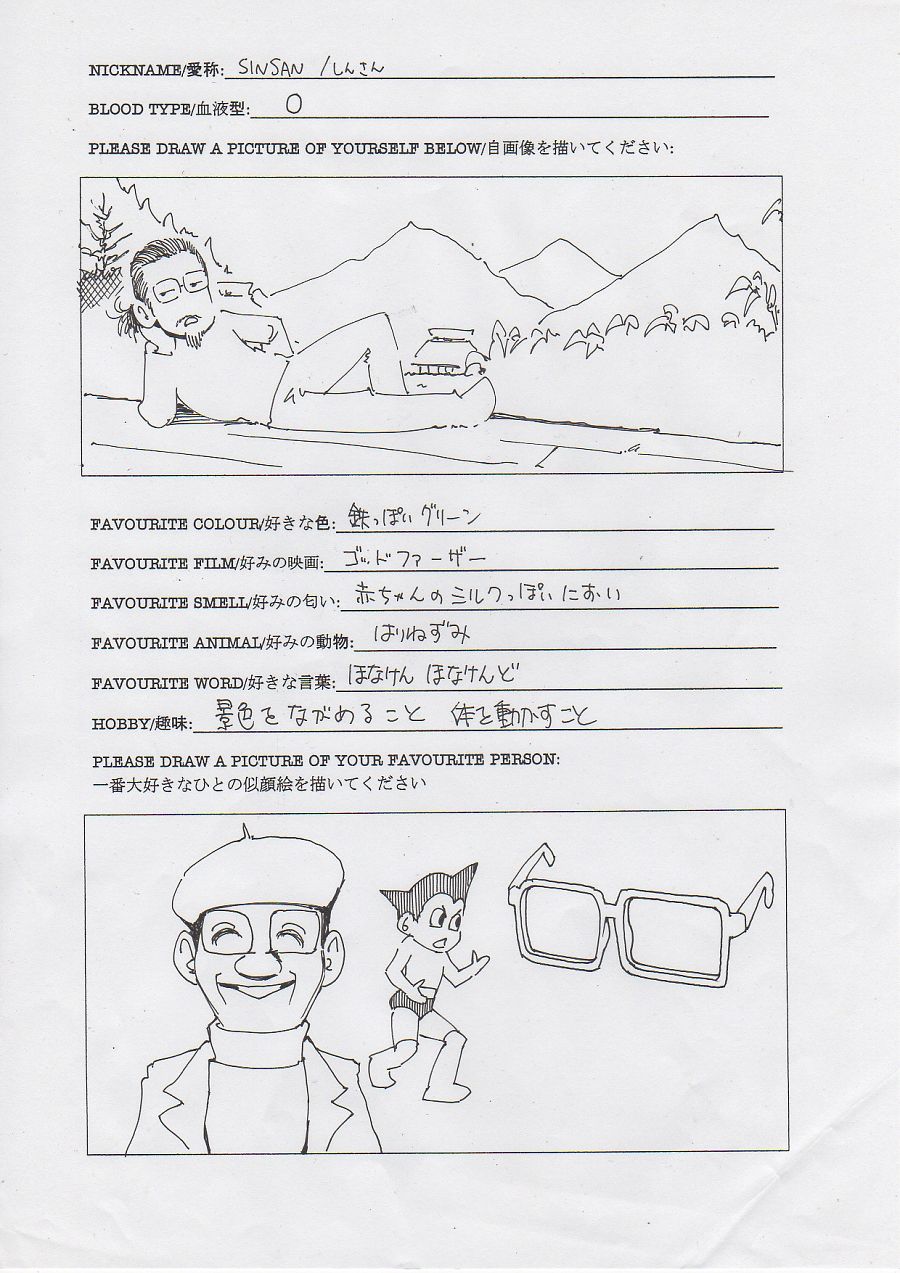 NICKNAME/愛称: SINSAN /しんさん
BLOOD TYPE/血液型: O
PLEASE DRAW A PICTURE OF YOURSELF BELOW/自画像を描いてください:
FAVOURITE COLOUR/好きな色: 鉄っぽいグリーン
FAVOURITE FILM/好みの映画: ゴッドファーザー
FAVOURITE SMELL/好みの匂い: 赤ちゃんのミルクっぽいにおい
FAVOURITE ANIMAL/好みの動物: はりねずみ
FAVOURITE WORD/好きな言葉: ほなけん ほなけんど
HOBBY/趣味: 景色をながめること 体を動かすこと
PLEASE DRAW A PICTURE OF YOUR FAVOURITE PERSON:
一番大好きなひとの似顔絵を描いてください